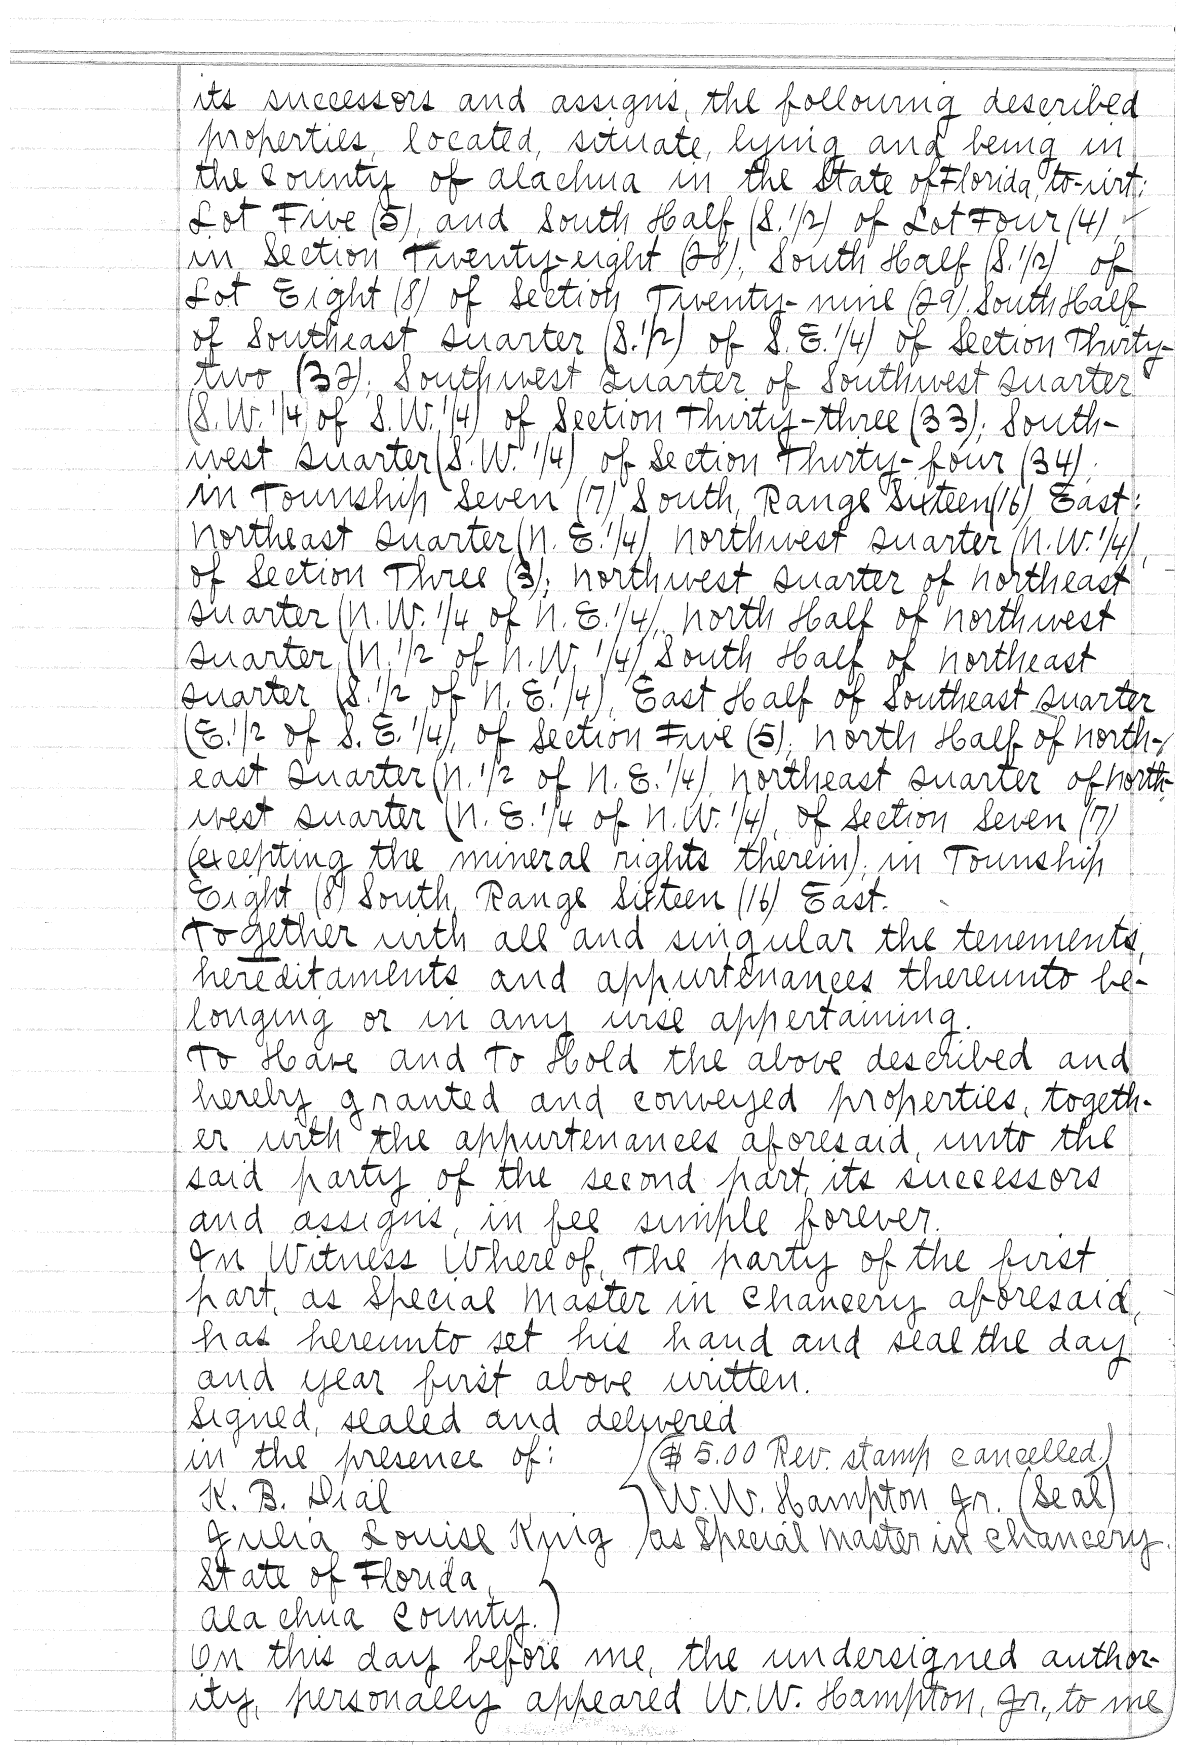 its successors and assigns, the following described
properties, located, situate, lying and being in
the County of Alachua in the State of Florida, to-wit:
Lot Five (5), and South Half (S.1/2) of Lot Four (4)
in Section Twenty-eight (28); South Half (S.1/2) of
Lot Eight (8) of Section Twenty-nine (29); South Half
of Southeast Quarter (S.1/2) of S.E.1/4) of Section Thirty-
two (32); Southwest Quarter of Southwest Quarter
(S.W.1/4 of S.W.1/4) of Section Thirty-three (33); South-
west Quarter (S.W.1/4) of Section Thirty-four (34);
in Township Seven (7) South, Range Sixteen (16) East;
Northeast Quarter (N.E.1/4), Northwest Quarter (N.W.1/4),
of Section Three (3); Northwest Quarter of Northeast
Quarter (N.W.1/4 of N.E.1/4), North Half of Northwest
Quarter (N.1/2 of N.W.1/4), South Half of Northeast
Quarter (S.1/2 of N.E.1/4), East Half of Southeast Quarter
(E.1/2 of S.E.1/4), of Section Five (5); North Half of North-
east Quarter (N.1/2 of N.E.1/4), Northeast Quarter of North-
west Quarter (N.E.1/4 of N.W.1/4), of Section Seven (7)
(excepting the mineral rights therein); in Township
Eight (8) South, Range Sixteen (16) East.
Together with all and singular the tenements,
hereditaments and appurtenances thereunto be-
longing or in any wise appertaining.
To Have and To Hold the above described and
hereby granted and conveyed properties, togeth-
er with the appurtenances aforesaid, unto the
said party of the second part, its successors
and assigns, in fee simple forever.
In Witness Whereof, The party of the first
part, as Special Master in Chancery aforesaid,
has hereunto set his hand and seal the day
and year first above written.
Signed, sealed and delivered
in the presence of: ($5.00 Rev. stamp cancelled)
K. B. Dial W.W. Hampton Jr. (Seal)
Julia Louise King as Special Master in Chancery.
State of Florida,
Alachua County.)
On this day before me, the undersigned author-
ity, personally appeared W.W. Hampton, Jr., to me